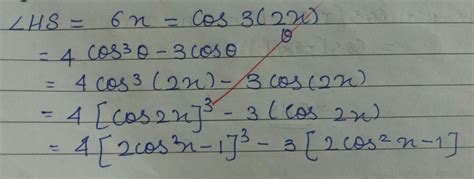 LHS = 6x = cos 3(2x)
θ
= 4 cos³θ - 3cosθ
= 4cos³(2x) - 3cos(2x)
= 4[cos2x]³ - 3(cos 2x)
= 4[2cos²x-1]³ - 3[2cos²x-1]